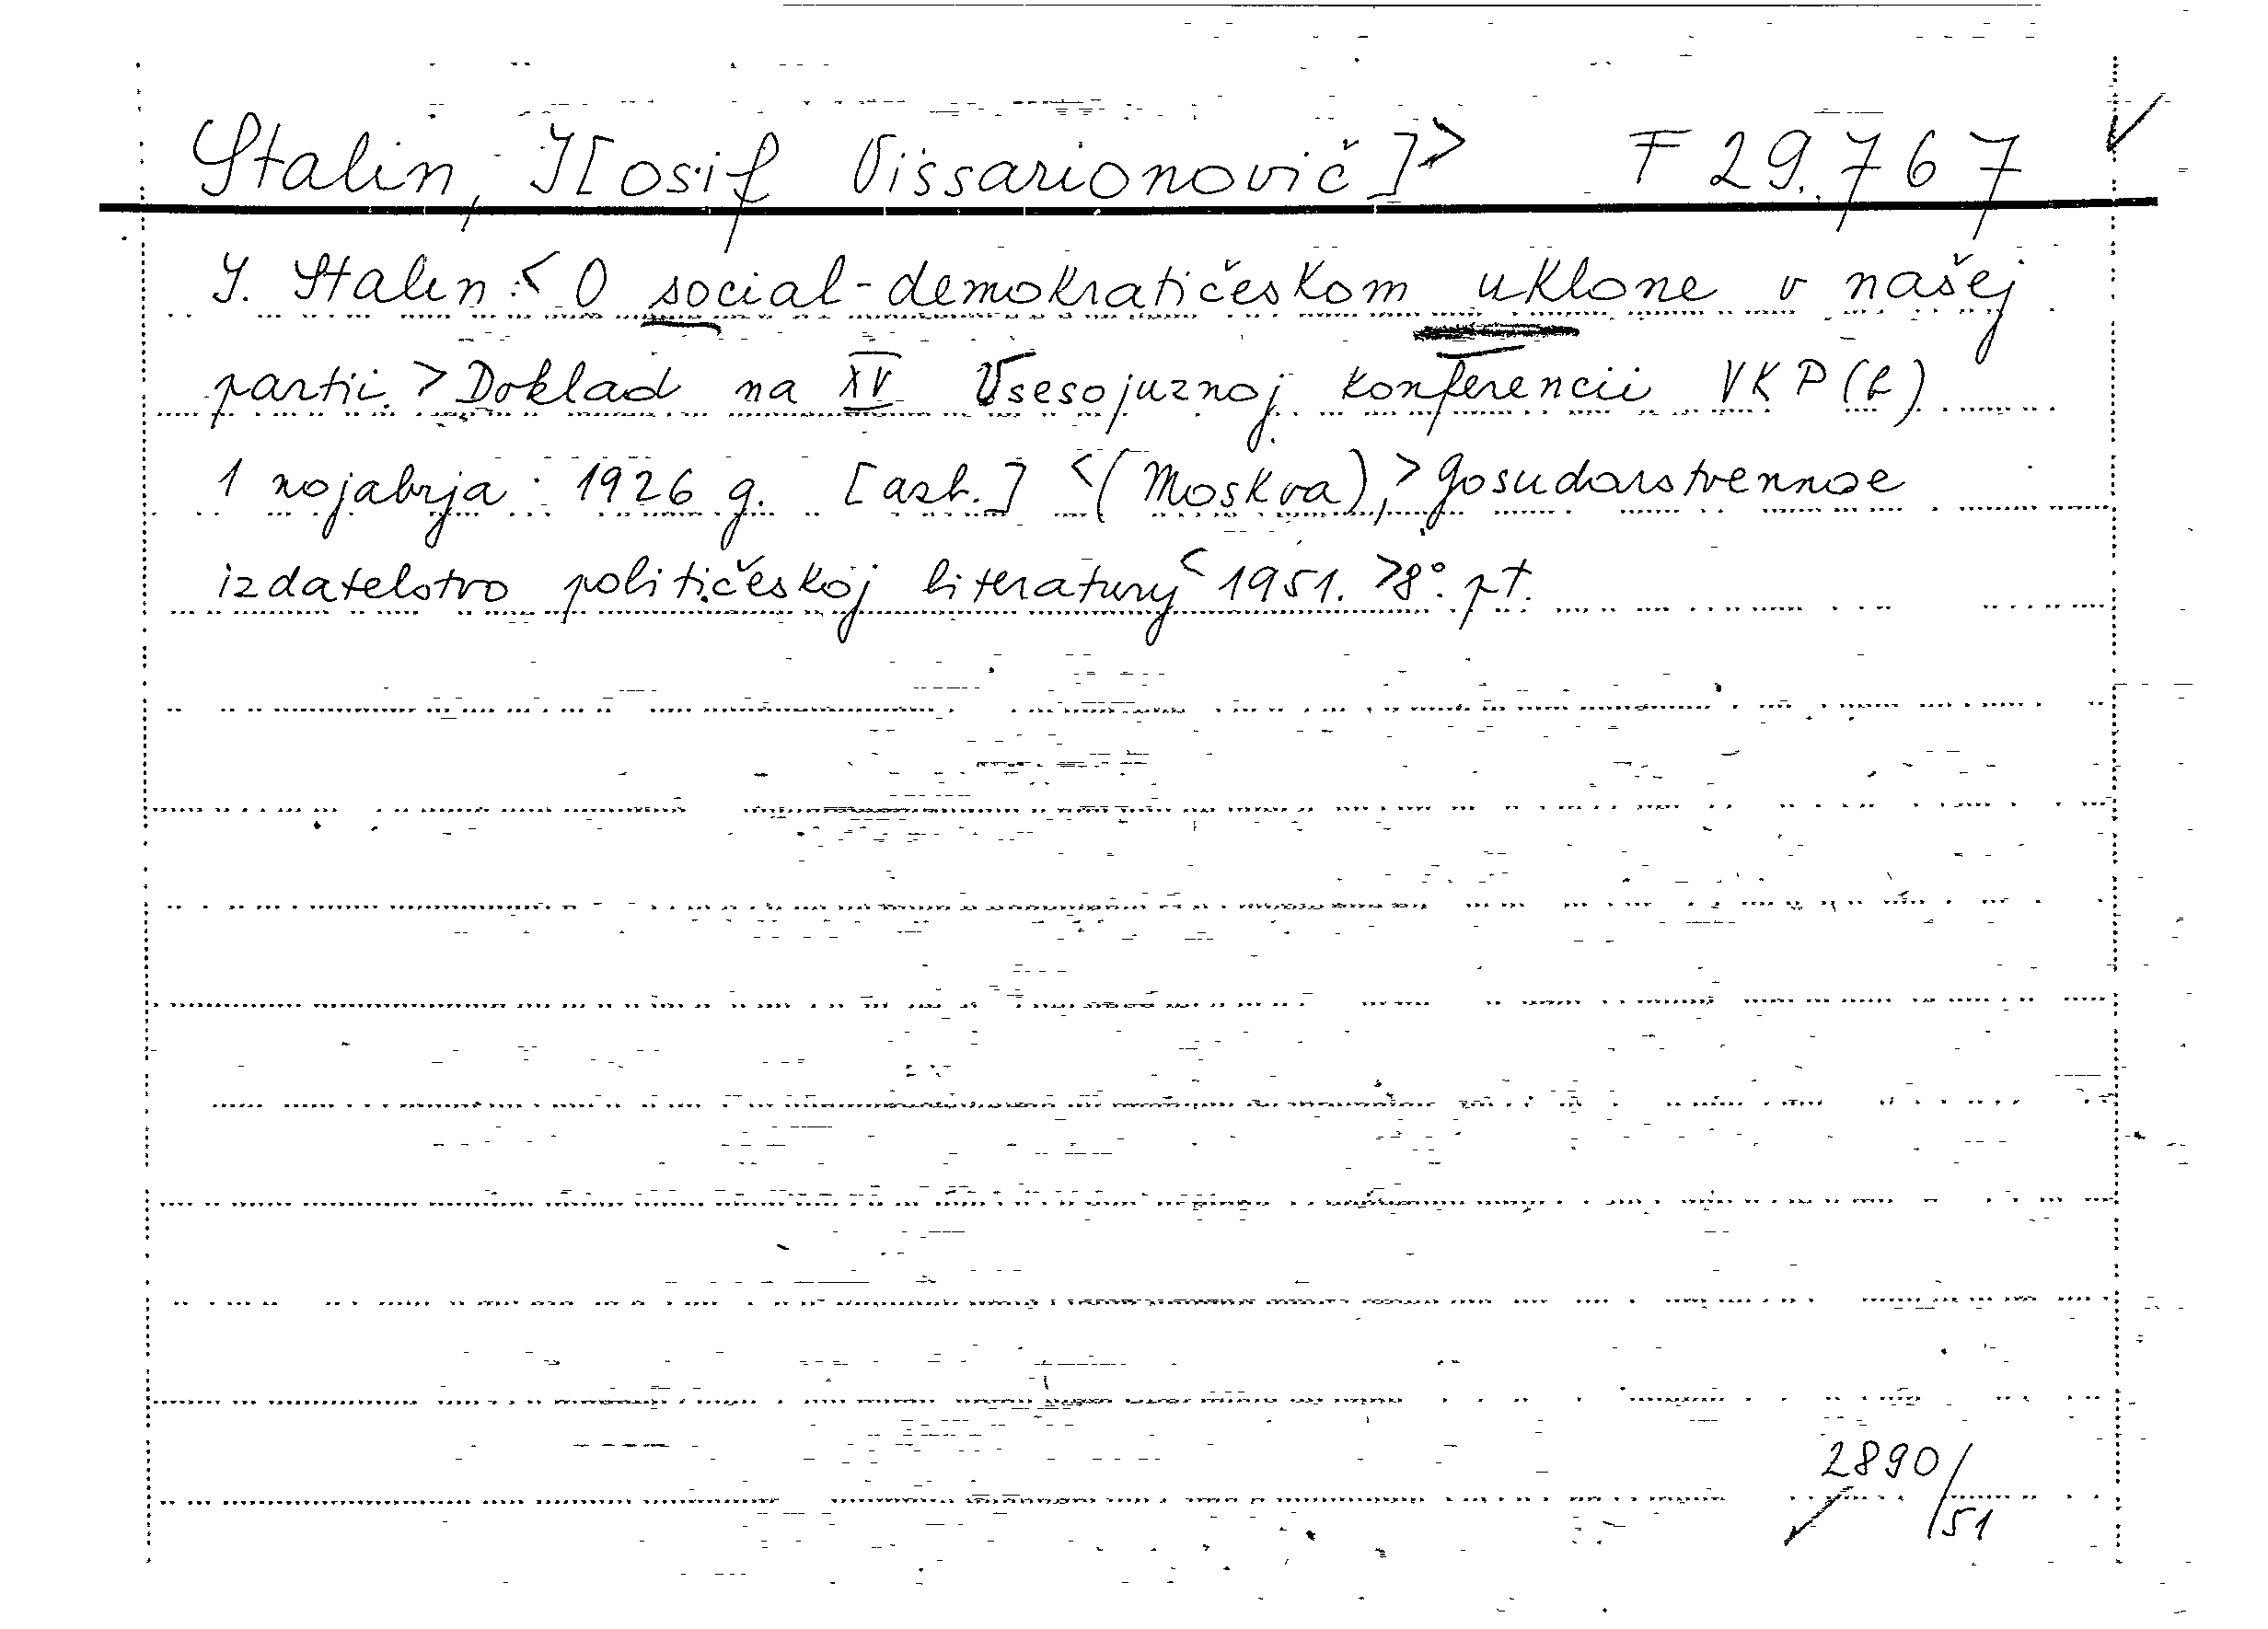 Stalin, I[osif Vissarionovič]> F 29.767
I. Stalin:< O social-demokratičeskom uklone v našej
partii.> Doklad na XV Vsesojuznoj konferencii VKP(b)
1 nojabrja 1926 g. [asb.] <(Moskva),> Gosudarstvennoe
izdatelstvo političeskoj literatury< 1951.> 8°. pt.
2890/
51